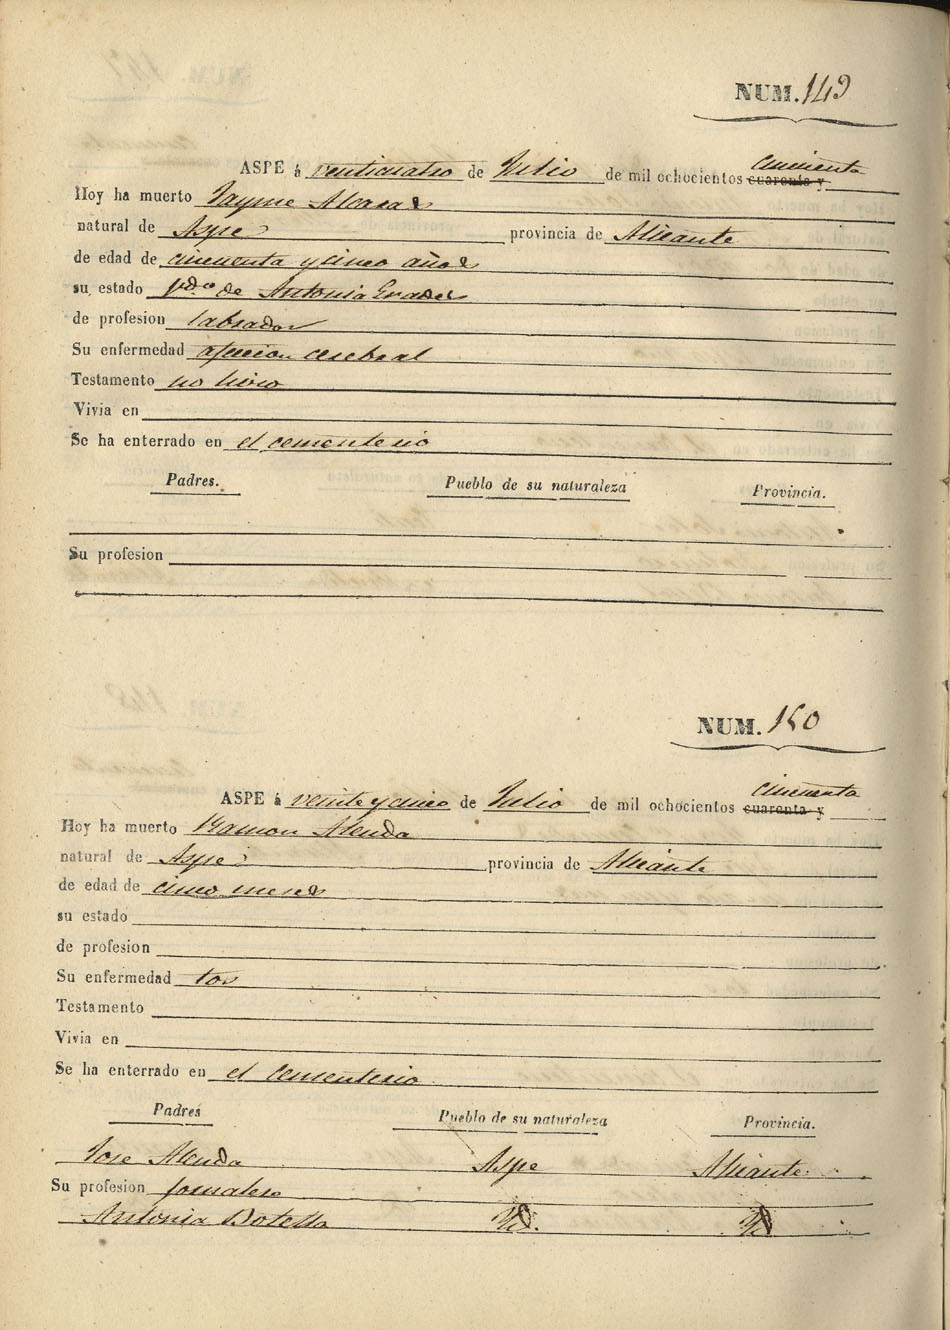 NUM. 149
cincuenta
ASPE á venticuatro de Julio de mil ochocientos cuarenta y
Hoy ha muerto Jayme Alcaraz
natural de Aspe provincia de Alicante
de edad de cincuenta y cinco años
su estado v.do de Antonia
de profesion labrador
Su enfermedad afeccion cerebral
Testamento no hizo
Vivia en
Se ha enterrado en el cementerio
Padres. Pueblo de su naturaleza Provincia.
Su profesion
NUM. 150
cincuenta
ASPE á veinte y cinco de Julio de mil ochocientos cuarenta y
Hoy ha muerto Ramon Alenda
natural de Aspe provincia de Alicante
de edad de cinco meses
su estado
de profesion
Su enfermedad tos
Testamento
Vivia en
Se ha enterrado en el cementerio
Padres Pueblo de su naturaleza Provincia.
Jose Alenda Aspe Alicante
Su profesion jornalero
Antonia Botella Yd. Yd